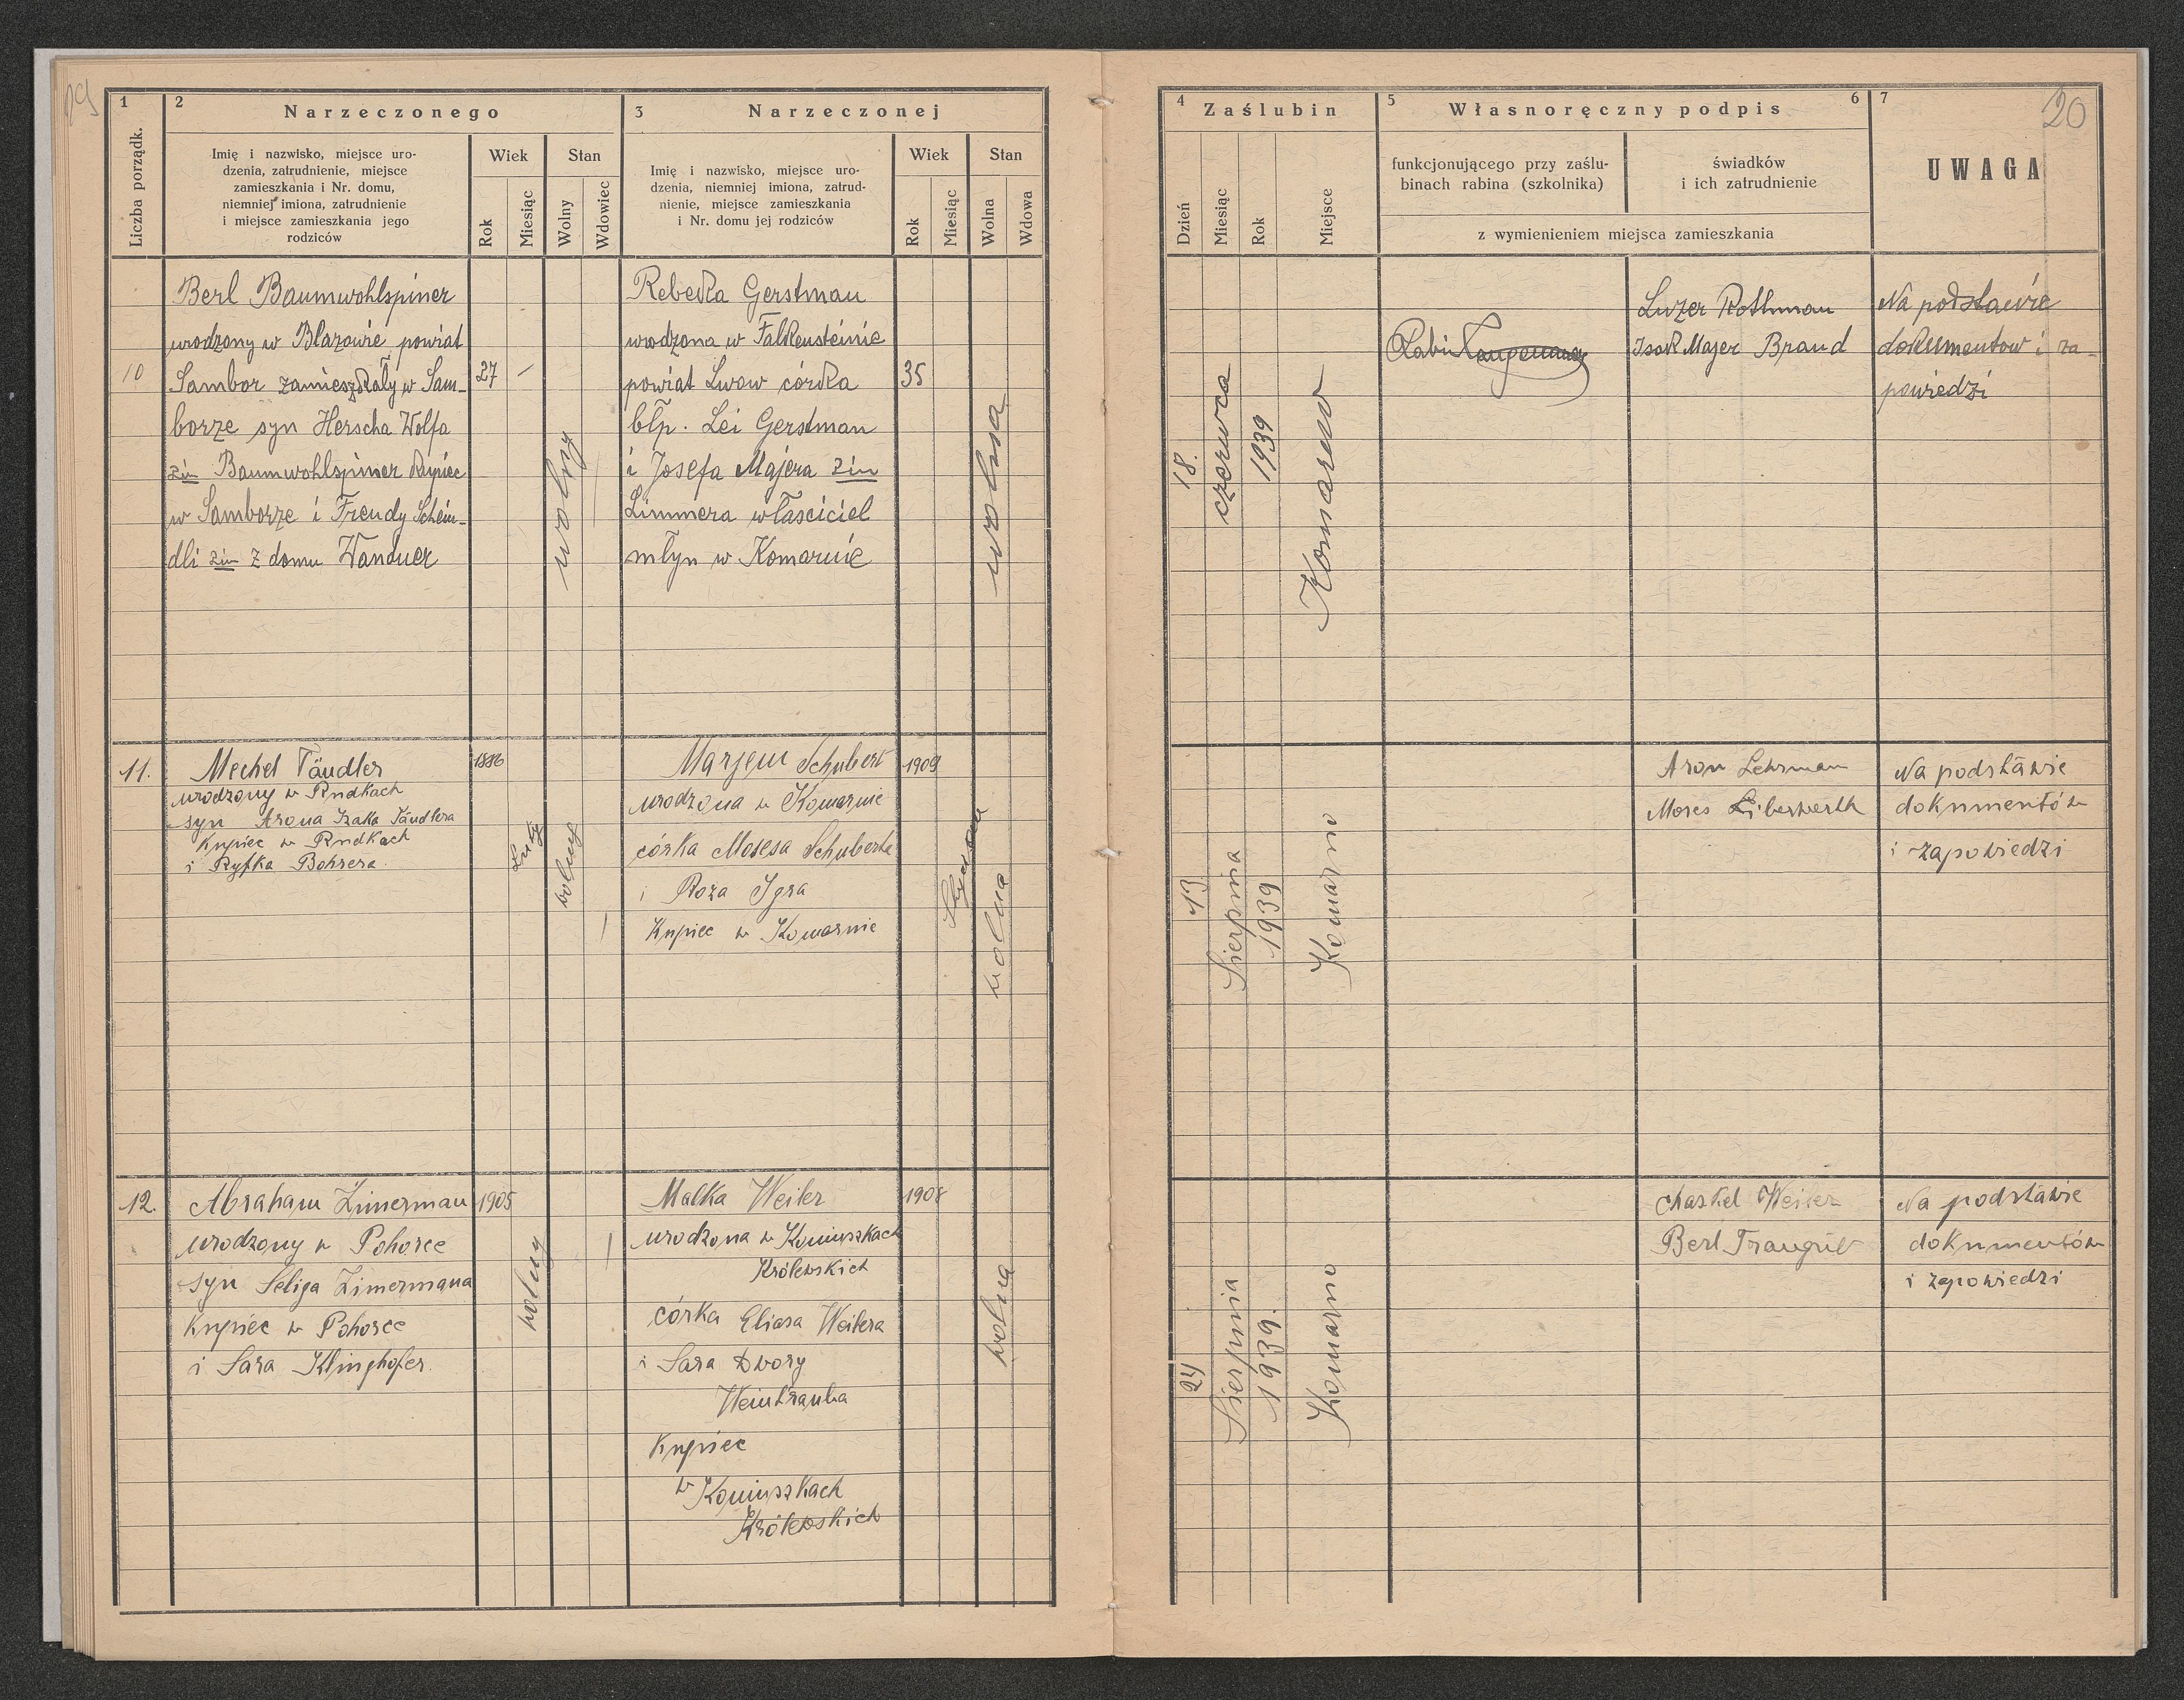 19
1
2
Narzeczonego
3
Narzeczonej
Liczba porządk.
Imię i nazwisko, miejsce uro-
dzenia, zatrudnienie, miejsce
zamieszkania i Nr. domu,
niemniej imiona, zatrudnienie
i miejsce zamieszkania jego
rodziców
Wiek
Stan
Rok
Miesiąc
Wolny
Wdowiec
Imię i nazwisko, miejsce uro-
dzenia, niemniej imiona, zatrud-
nienie, miejsce zamieszkania
i Nr. domu jej rodziców
Wiek
Stan
Rok
Miesiąc
Wolna
Wdowa
10
Berl Baumwohlspiner
urodzony w Blazowie powiat
Sambor zamieszkały w Sam-
borze syn Herscha Wolfa
zim Baumwohlspiner Kupiec
w Samborze i Freudy Schein-
dli zim z domu Wanduer
27
wolny
Rebeka Gerstman
urodzona w Falkensteinie
powiat Lwow córka
błp. Lei Gerstman
i Josefa Majera zim
Limmera własciciel
młyn w Komarnie
35
wolna
11.
Mechel Tändler
urodzony w Rudkach
syn Arona Izaka Tändlera
Kupiec w Rudkach
i Ryfka Bohrera.
1886
Luty
wolny
Marjem Schubert
urodzona w Komarnie
córka Mosesa Schuberta
i Roza Igra
Kupiec w Komarnie
1909
wolna
12.
Abraham Zimerman
urodzony w Pohorce
syn Seliga Zimermana
Kupiec w Pohorce
i Sara Klinghofer.
1905
wolny
Malka Weiler
urodzona w Koniuszkach
Królewskich
córka Eliasa Weilera
i Sara Dwory
Weintrauba
Kupiec
w Koniuszkach
Królewskich
1908
wolna
20
4
Zaślubin
5
Własnoręczny podpis
6
7
UWAGA
Dzień
Miesiąc
Rok
Miejsce
funkcjonującego przy zaślu-
binach rabina (szkolnika)
świadków
i ich zatrudnienie
z wymienieniem miejsca zamieszkania
18.
czerwca
1939
Komarno
Rabin
Luzer Rothman
Isak Majer Brand
Na podstawie
dokumentow i za-
powiedzi
13
Sierpnia
1939
Komarno
Aron Lehrman
Moses Liberwerth
Na podstawie
dokumentów
i zapowiedzi
24
Sierpnia
1939.
Komarno
Chaskel Weiler
Berl
Na podstawie
dokumentów
i zapowiedzi